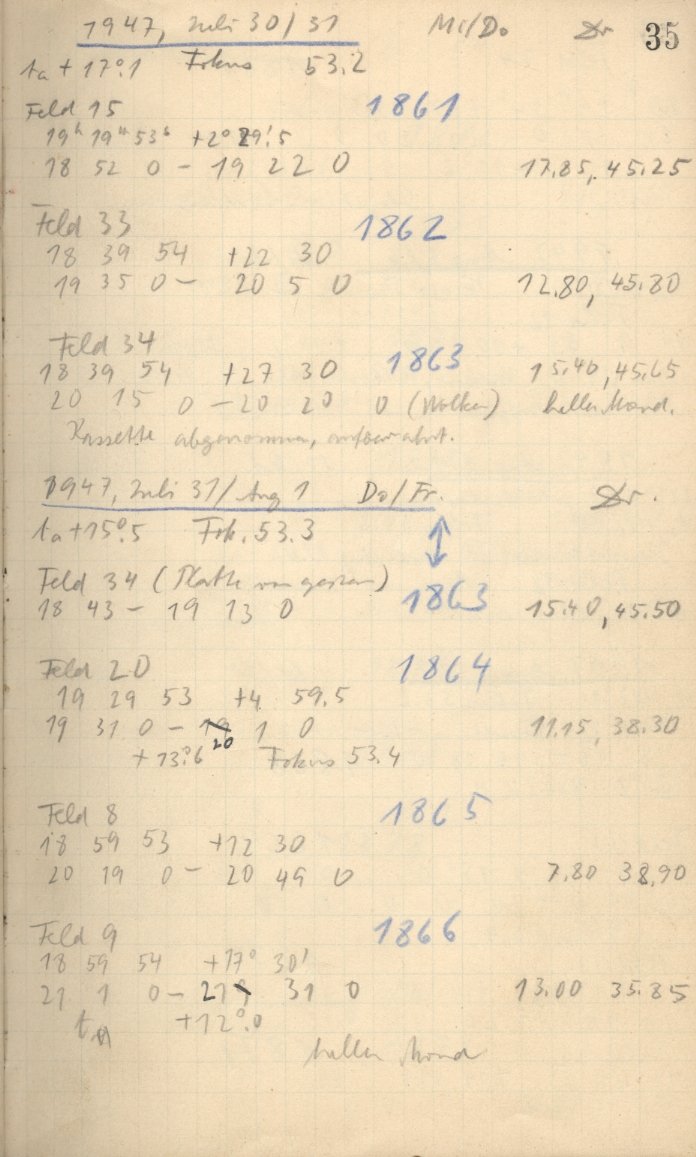 1947, Juli 30/31 Mi/Do Dr. 35
ta + 17°.1 Fokus 53.2
Feld 15 1861
19h 19m 53s +2° 29!5
18 52 0 - 19 22 0 17.85, 45.25
Feld 33 1862
18 39 54 +22 30
19 35 0 - 20 5 0 12.80, 45.80
Feld 34 1863
18 39 54 +27 30 15.40, 45.65
20 15 0 - 20 20 0 (Wolken) heller Mond.
Kassette abgenommen, aufbewahrt.
1947, Juli 31/Aug 1 Do/Fr. Dr.
ta +15°.5 Fok. 53.3
Feld 34 (Platte von gestern) 1863
18 43 - 19 13 0 15.40, 45.50
Feld 20 1864
19 29 53 +4 59.5
19 31 0 - 20 1 0 11.15, 38.30
+13°.6 Fokus 53.4
Feld 8 1865
18 59 53 +12 30
20 19 0 - 20 49 0 7.80 38.90
Feld 9 1866
18 59 54 +17° 30'
21 1 0 - 21 31 0 13.00 35.85
ta +12°.0
heller Mond